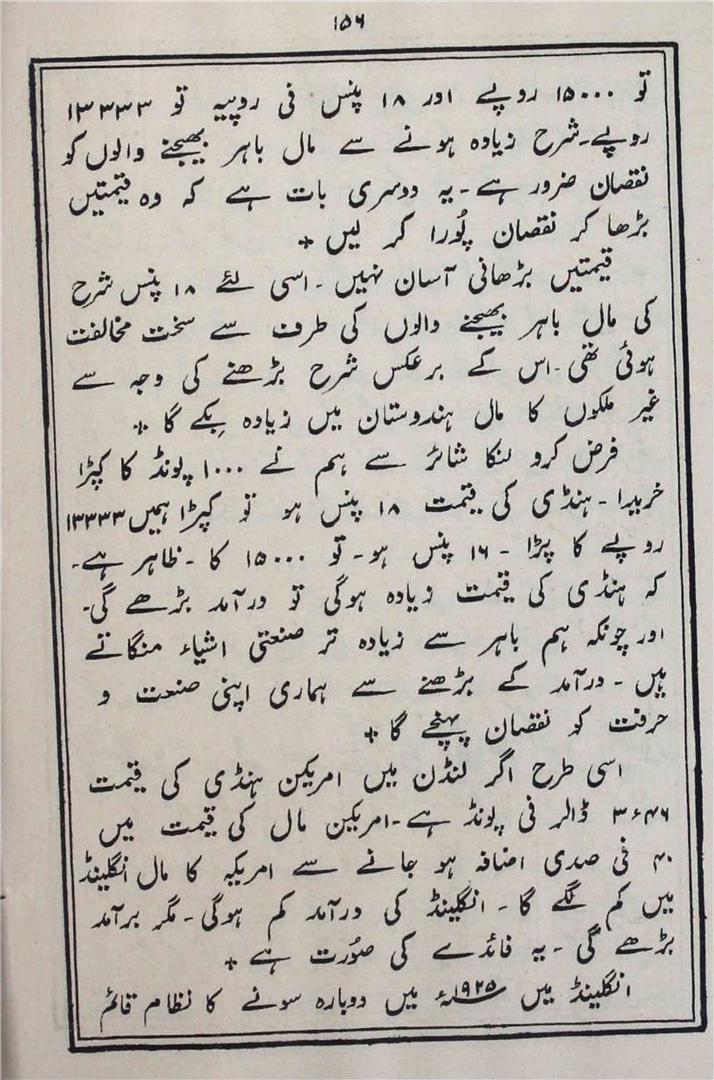 ۱۵۶
تو ۱۵۰۰۰ روپے اور ۱۸ پنس فی روپیہ تو ۱۳۳۳۳
روپے۔شرح زیادہ ہونے سے مال باہر بھیجنے والوں کو
نقصان ضرور ہے۔یہ دوسری بات ہے کہ وہ قیمتیں
بڑھا کر نقصان پُورا کر لیں +
قیمتیں بڑھانی آسان نہیں۔اسی لئے ۱۸ پنس شرح
کی مال باہر بھیجنے والوں کی طرف سے سخت مخالفت
ہوئی تھی۔اس کے برعکس شرح بڑھنے کی وجہ سے
غیر ملکوں کا مال ہندوستان میں زیادہ بِکے گا +
فرض کرو لنکا شائر سے ہم نے ۱۰۰۰ پونڈ کا کپڑا
خریدا۔ہنڈی کی قیمت ۱۸ پنس ہو تو کپڑا ہمیں ۱۳۳۳۳
روپے کا پڑا۔ ۱۶ پنس ہو۔تو ۱۵۰۰۰ کا۔ظاہر ہے۔
کہ ہنڈی کی قیمت زیادہ ہوگی تو درآمد بڑھے گی۔
اور چونکہ ہم باہر سے زیادہ تر صنعتی اشیاء منگاتے
ہیں۔درآمد کے بڑھنے سے ہماری اپنی صنعت و
حرفت کو نقصان پہنچے گا +
اسی طرح اگر لنڈن میں امریکن ہنڈی کی قیمت
۳ء۴۶ ڈالر فی پونڈ ہے۔امریکن مال کی قیمت میں
۴۰ فی صدی اضافہ ہو جانے سے امریکہ کا مال انگلینڈ
میں کم لگے گا۔انگلینڈ کی درآمد کم ہوگی۔مگر برآمد
بڑھے گی۔یہ فائدے کی صُورت ہے +
انگلینڈ میں ۱۹۲۵ء میں دوبارہ سونے کا نظام قائم